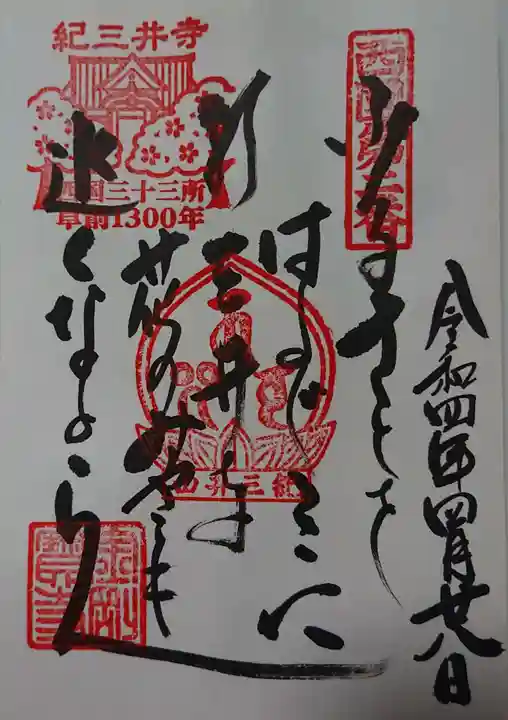 令和四年四月廿八日
西国第二番
ふるさとを
はるばるここに
き三井寺
花のみやこも
近くなるらん
紀三井寺
西国三十三所
草創1300年